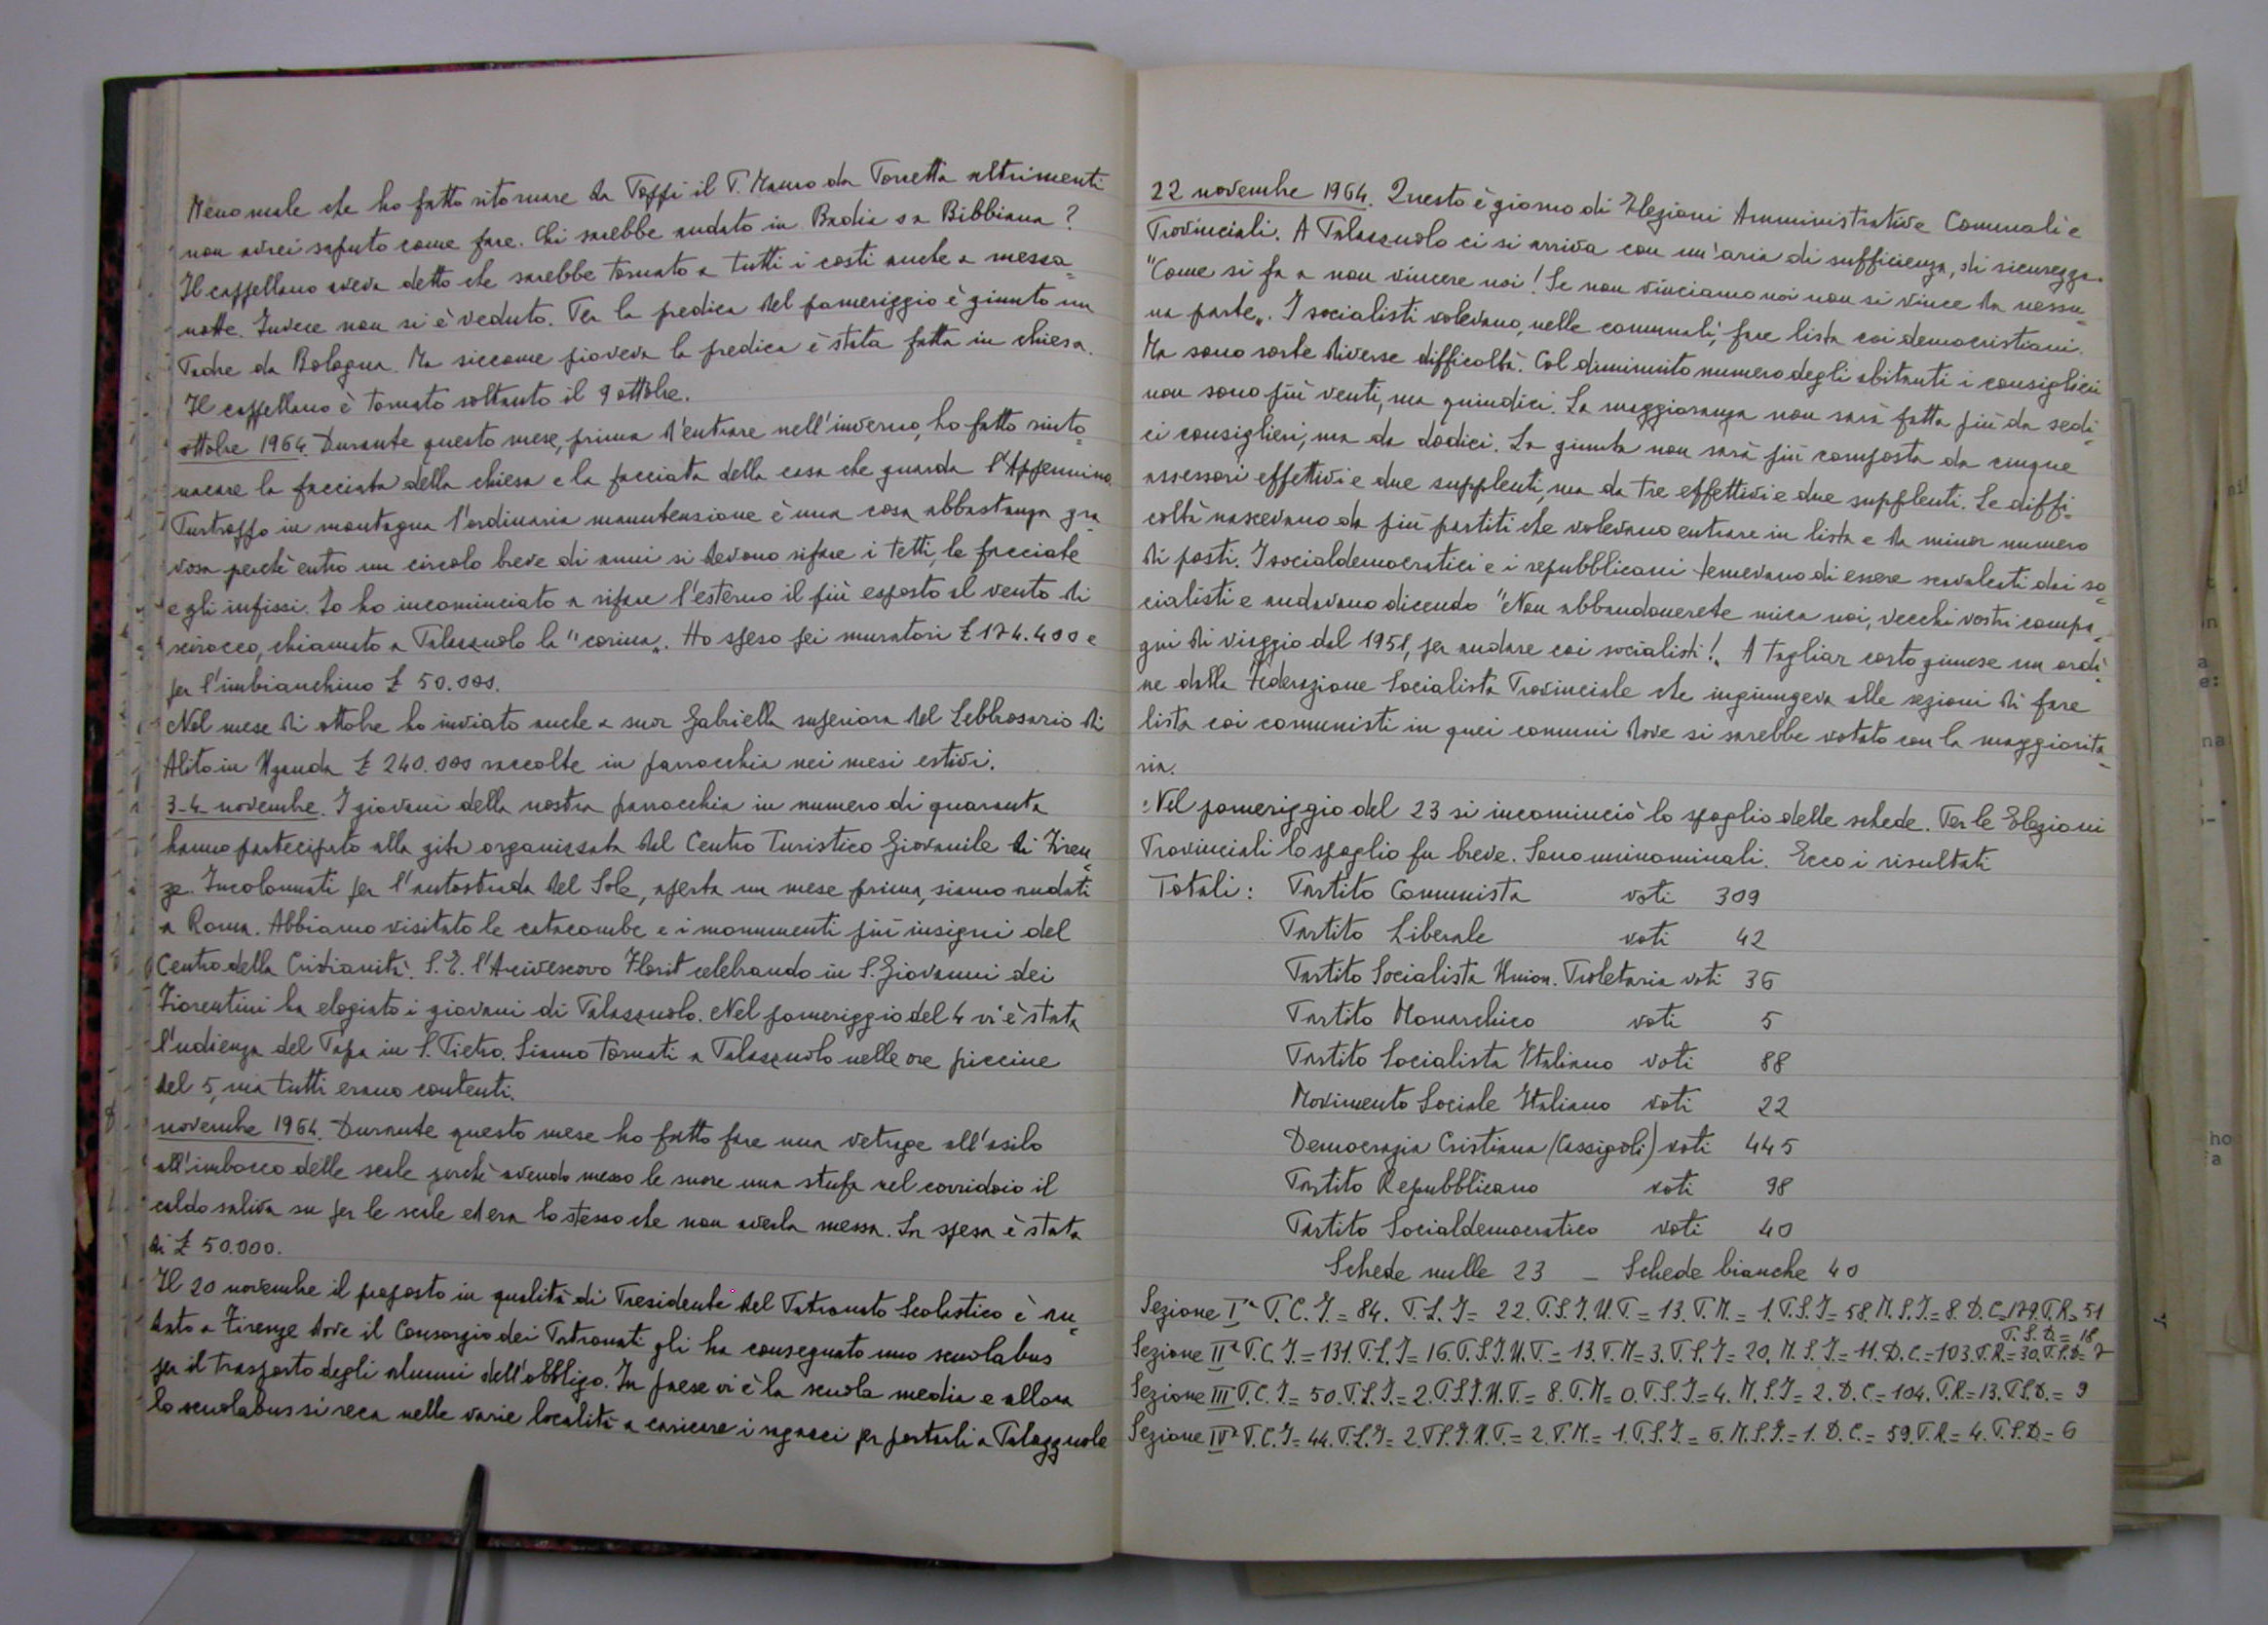 Meno male che ho fatto ritornare da Poppi il P. Mauro da Torretta altrimenti
non avrei saputo come fare. Chi sarebbe andato in Badia o a Bibbiana?
Il cappellano aveva detto che sarebbe tornato a tutti i costi anche a mezza
notte. Invece non si è veduto. Per la predica del pomeriggio è giunto un
Padre da Bologna. Ma siccome pioveva la predica è stata fatta in chiesa.
Il cappellano è tornato soltanto il 9 ottobre.
ottobre 1964. Durante questo mese, prima d'entrare nell'inverno, ho fatto rinto=
nacare la facciata della chiesa e la facciata della casa che guarda l'Appennino.
Purtroppo in montagna l'ordinaria manutenzione è una cosa abbastanza gra=
vosa perchè entro un circolo breve di anni si devono rifare i tetti, le facciate
e gli infissi. Io ho incominciato a rifare l'esterno il più esposto al vento di
scirocco, chiamato a Palazzuolo la "corina„. Ho speso pei muratori £ 174.400 e
per l'imbianchino £ 50.000.
Nel mese di ottobre ho inviato anche a suor Gabriella superiora del Lebbrosario di
Alito in Uganda £ 240.000 raccolte in parrocchia nei mesi estivi.
3-4 novembre. I giovani della nostra parrocchia in numero di quaranta
hanno partecipato alla gita organizzata dal Centro Turistico Giovanile di Firen=
ze. Incolonnati per l'autostrada del Sole, aperta un mese prima, siamo andati
a Roma. Abbiamo visitato le catacombe e i monumenti più insigni del
Centro della Cristianità. S.E. l'Arcivescovo Florit celebrando in S. Giovanni dei
Fiorentini ha elogiato i giovani di Palazzuolo. Nel pomeriggio del 4 vi è stata
l'udienza del Papa in S. Pietro. Siamo tornati a Palazzuolo nelle ore piccine
del 5, ma tutti erano contenti.
novembre 1964. Durante questo mese ho fatto fare una vetrage all'asilo
all'imbocco delle scale perchè avendo messo le suore una stufa nel corridoio il
caldo saliva su per le scale ed era lo stesso che non averla messa. La spesa è stata
di £ 50.000.
Il 20 novembre il proposto in qualità di Presidente del Patronato Scolastico è an=
dato a Firenze dove il Consorzio dei Patronati gli ha consegnato uno scuolabus
per il trasporto degli alunni dell'obbligo. In paese vi è la scuola media e allora
lo scuolabus si reca nelle varie località a caricare i ragazzi per portarli a Palazzuolo
22 novembre 1964. Questo è giorno di Elezioni Amministrative Comunali e
Provinciali. A Palazzuolo ci si arriva con un'aria di sufficienza, di sicurezza.
"Come si fa a non vincere noi! Se non vinciamo noi non si vince da nessu=
na parte„. I socialisti volevano, nelle comunali, fare lista coi democristiani.
Ma sono sorte diverse difficoltà. Col diminuito numero degli abitanti i consiglieri
non sono più venti, ma quindici. La maggioranza non sarà fatta più da sedi=
ci consiglieri, ma da dodici. La giunta non sarà più composta da cinque
assessori effettivi e due supplenti, ma da tre effettivi e due supplenti. Le diffi=
coltà nascevano da più partiti che volevano entrare in lista e da minor numero
di posti. I socialdemocratici e i repubblicani temevano di essere scavalcati dai so=
cialisti e andavano dicendo "Non abbandonerete mica noi, vecchi vostri compa=
gni di viaggio dal 1951, per andare coi socialisti!„ A tagliar corto giunse un ordi=
ne dalla Federazione Socialista Provinciale che ingiungeva alle sezioni di fare
lista coi comunisti in quei comuni dove si sarebbe votato con la maggiorita=
ria.
Nel pomeriggio del 23 si incominciò lo spoglio delle schede. Per le Elezioni
Provinciali lo spoglio fu breve. Sono uninominali. Ecco i risultati
Totali: Partito Comunista voti 309
Partito Liberale voti 42
Partito Socialista Union. Proletaria voti 36
Partito Monarchico voti 5
Partito Socialista Italiano voti 88
Movimento Sociale Italiano voti 22
Democrazia Cristiana (Cassigoli) voti 445
Partito Repubblicano voti 98
Partito Socialdemocratico voti 40
Schede nulle 23 – Schede bianche 40
Sezione Iª P.C.I= 84. P.L.I= 22. P.S.I.U.P= 13. P.M.= 1. P.S.I= 58. M.S.I= 8. D.C=179. P.R= 51
P.S.D.= 18
Sezione IIª P.C.I.= 131. P.L.I= 16. P.S.I.U.P.= 13. P.M= 3. P.S.I= 20. M.S.I= 11. D.C.= 103. P.R= 30. P.S.D= 7
Sezione III P.C.I= 50. P.L.I.= 2. P.S.I.U.P.= 8. P.M= 0. P.S.I= 4. M.S.I= 2. D.C= 104. P.R.= 13. P.S.D.= 9
Sezione IVª P.C.I= 44. P.L.I= 2. P.S.I.U.P.= 2. P.M.= 1. P.S.I.= 6. M.S.I.= 1. D.C.= 59. P.R.= 4. P.S.D.= 6